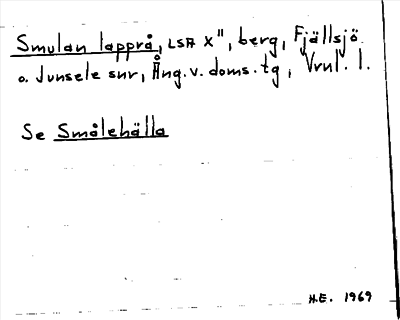 Smulan lapprå, LSA X", berg, Fjällsjö
o. Junsele snr, Ång.v. doms.tg, Vrnl. l.
Se Smålehälla
H.E. 1969